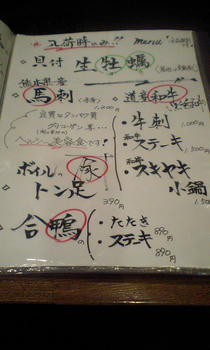 入荷時のみ… menu
貝付 生牡蠣
熊本県産
馬刺
良質なタンパク質
グリコーゲン
ヘルシー美容食です!
道産和牛
・牛刺
1,000円
・和牛ステーキ
・和牛スキヤキ
小鍋
ボイルの豚
トン足
390円
合鴨の
・たたき
890円
・ステーキ
890円